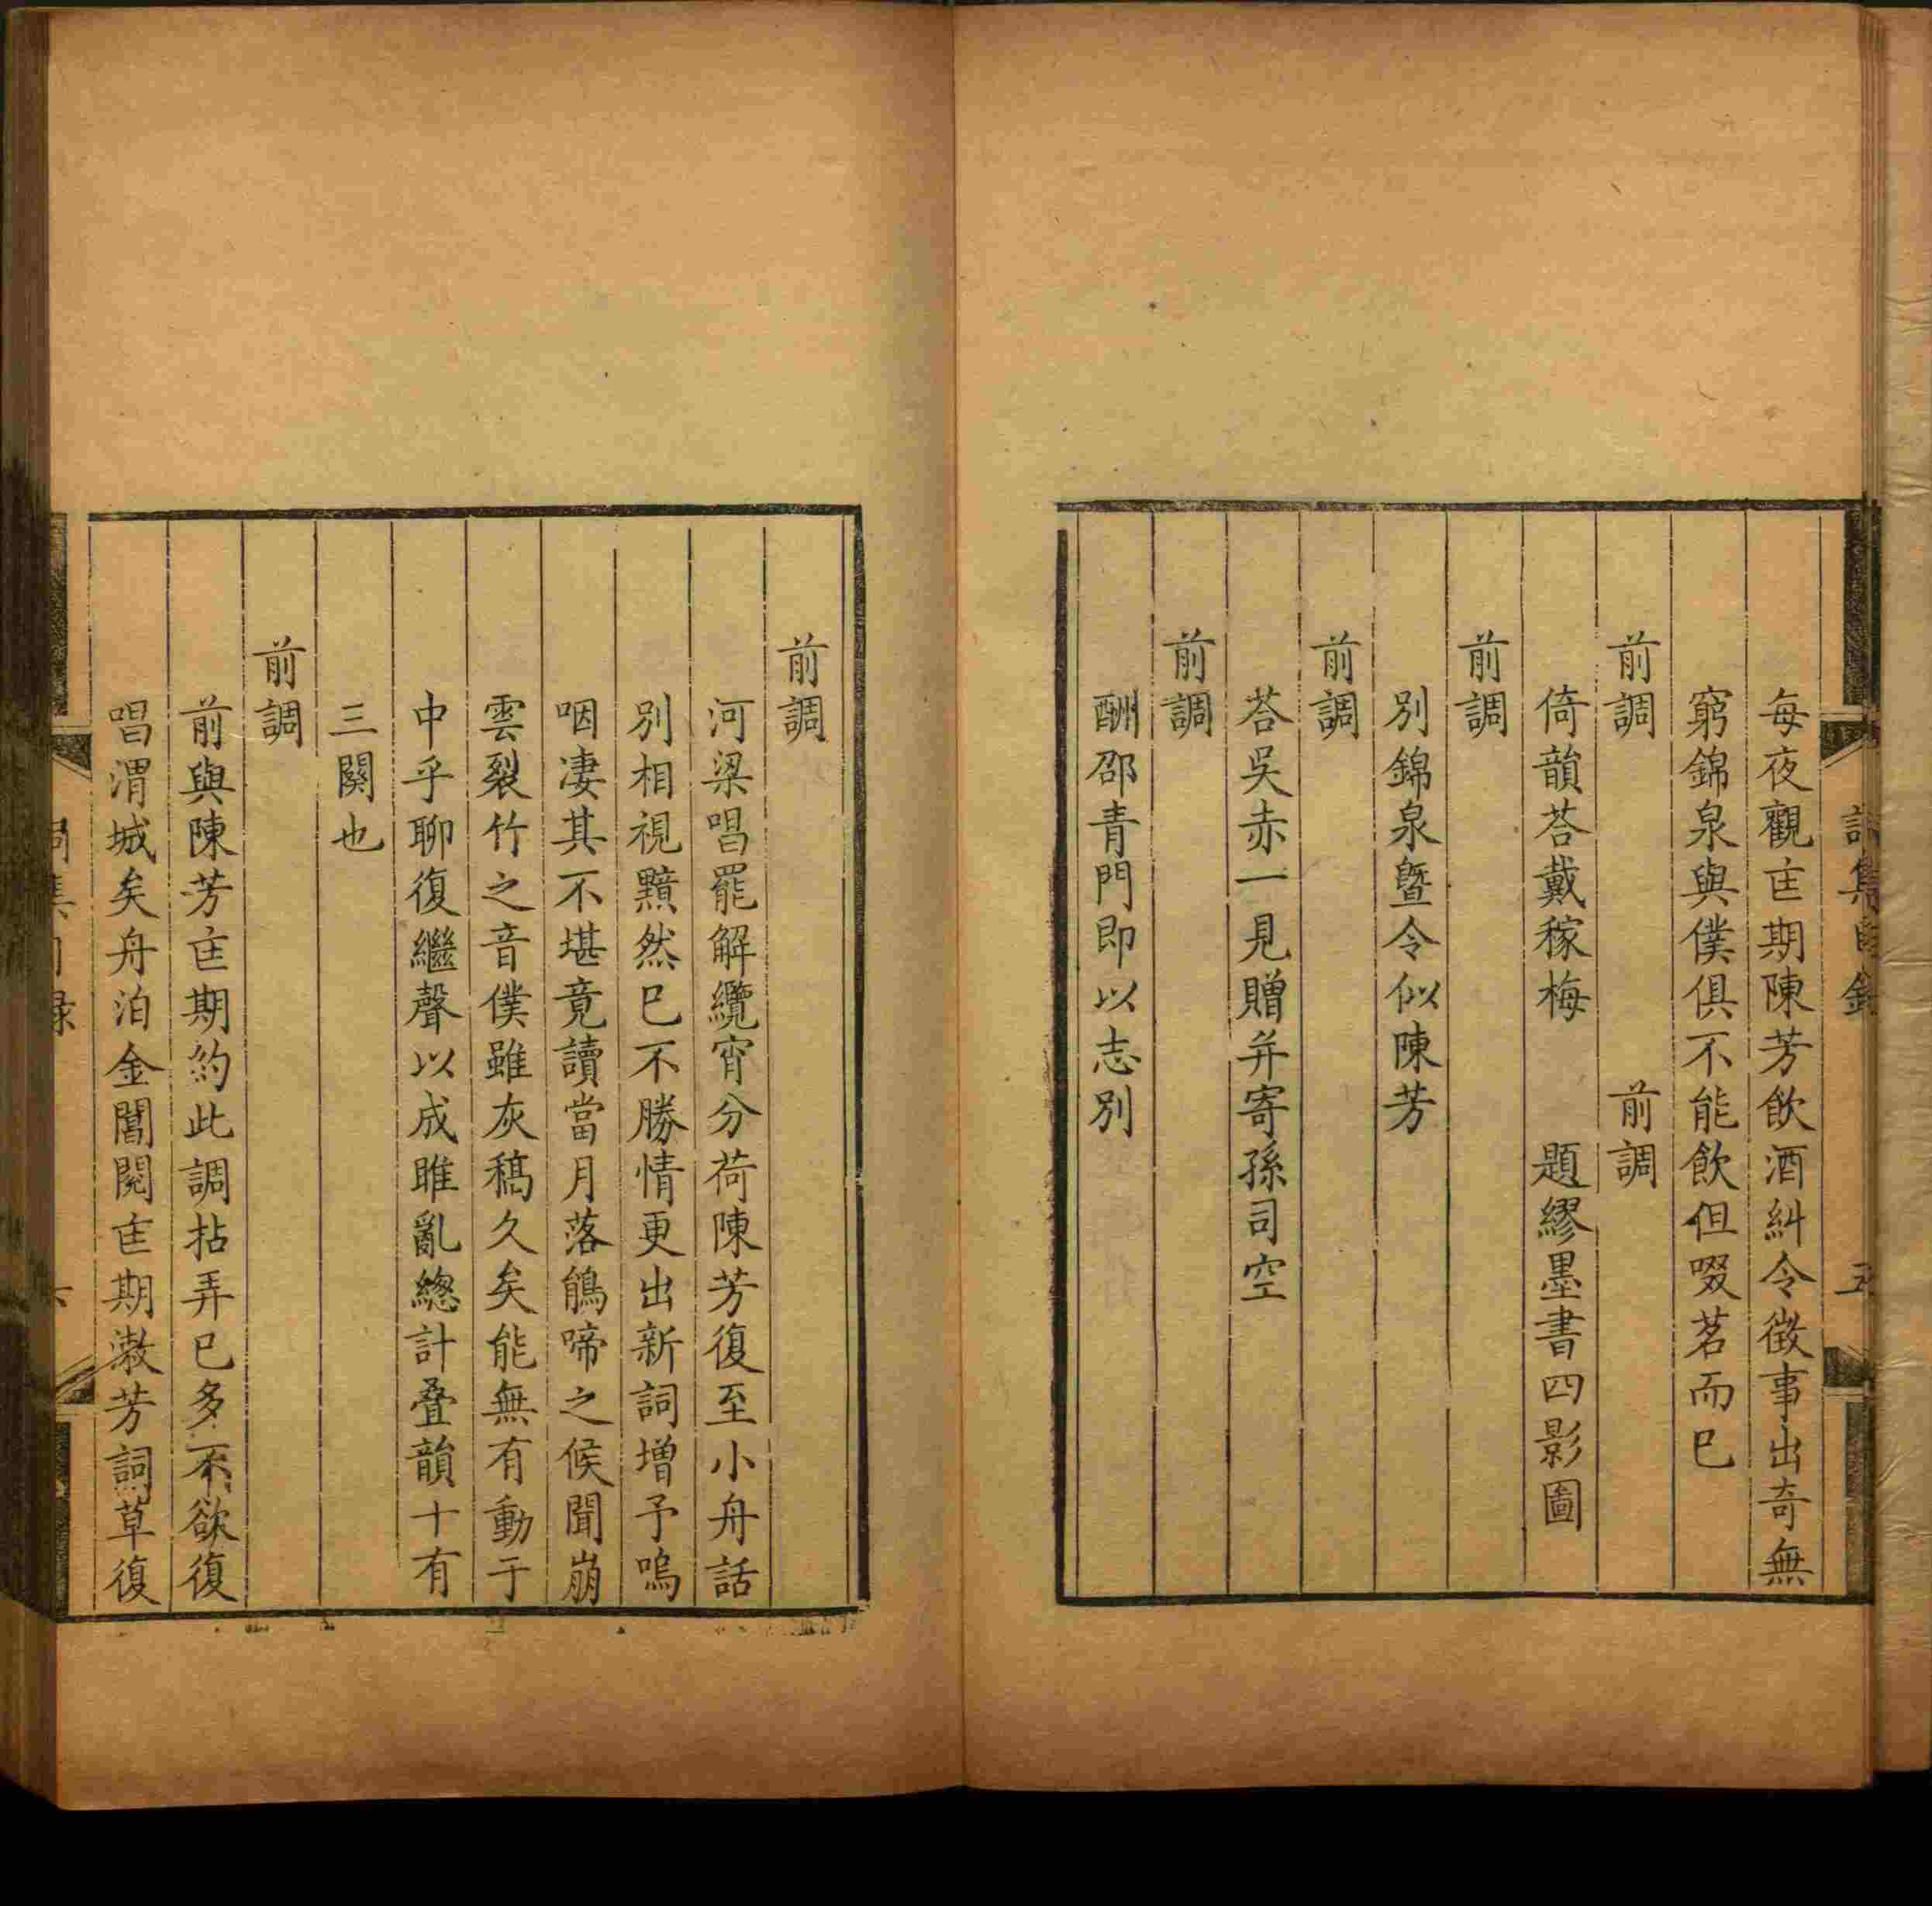 每夜觀𨒪期陳芳飲酒糾令徵事出奇無
窮錦泉與僕俱不能飲但啜茗而巳
前調　前調
倚韻荅戴稼梅　題繆墨書四影圖
前調
別錦泉曁令似陳芳
前調
荅吳赤一見贈并寄孫司空
前調
酬邵青門即以志別
前調
河梁唱罷解纜宵分荷陳芳復至小舟話
別相視黯然巳不勝情更出新詞增予嗚
咽凄其不堪竟讀當月落鵑啼之候聞崩
雲裂竹之音僕雖灰稿久矣能無有動于
中乎聊復繼聲以成雎亂總計叠韻十有
三闋也
前調
前與陳芳期約此調拈弄巳多不欲復
唱渭城矣舟泊金閶閱期漱芳詞草復